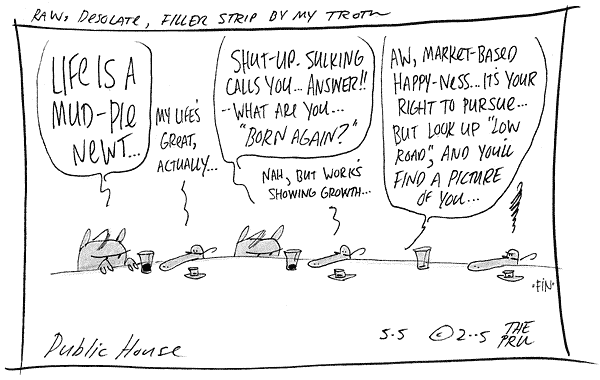 RAW, DESOLATE, FILLER STRIP BY MY TROTH
LIFE IS A
MUD-PIE
NEWT...
MY LIFE'S
GREAT,
ACTUALLY...
SHUT-UP. SULKING
CALLS YOU... ANSWER!!
--WHAT ARE YOU...
"BORN AGAIN?"
NAH, BUT WORK'S
SHOWING GROWTH...
AW, MARKET-BASED
HAPPY-NESS... IT'S YOUR
RIGHT TO PURSUE...
BUT LOOK UP "LOW
ROAD", AND YOU'LL
FIND A PICTURE
OF YOU...
·FIN·
Public House
5.5 © 2..5 THE
PRU